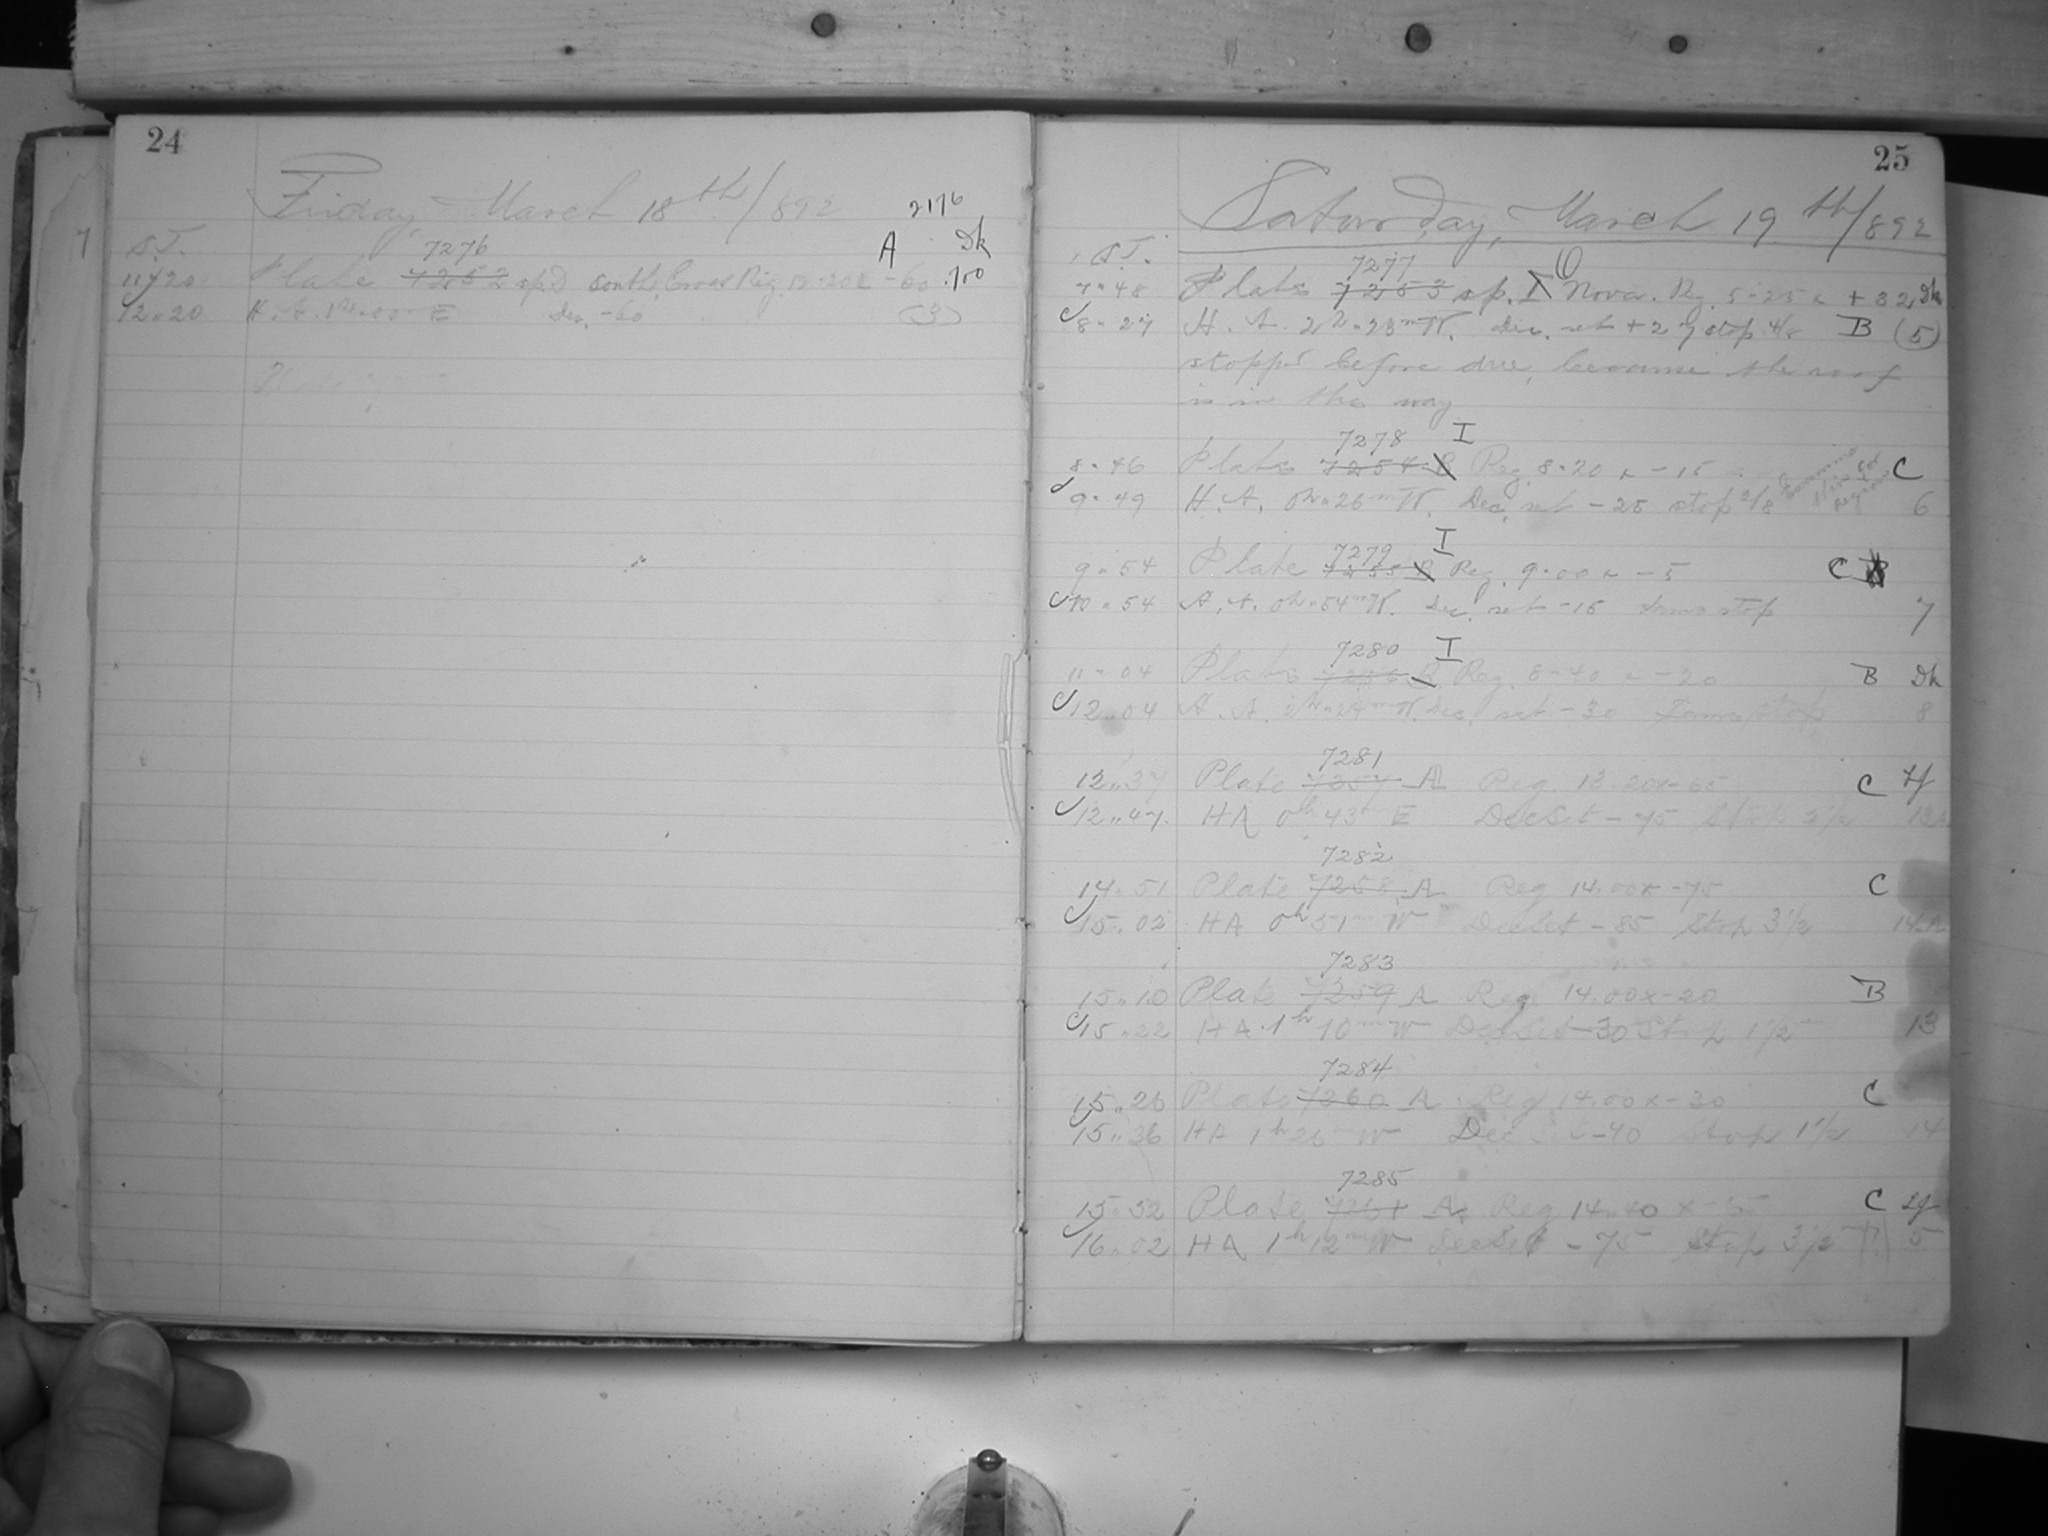 24
Friday March 18th/892
2176
S.T. 7276 A Dk
11.20 Plate 7252 sp.D South Cross Reg 12.20 x -60 .100
12.20 H.A. 1h.00 E Dec. -60 (3)
25
Saturday, March 19th/892
S.T. 7277
7.48 Plate 7253 sp. I Nova. Rg. 5-25 x +32 Dk
8.27 H.A. 2h.23m W. Dec. set +27 stop 4/8 B (5)
stopp'd before due, because the roof
is in the way
7278 I
8.46 Plate 7254 R Reg 8.20 x -15 C
Examine this for Region
9.49 H.A. 0h.26m W. Dec. set -25 stop 2/8 6
7279 I
9.54 Plate 7255 R Reg. 9.00 x -5 C
10.54 H.A. 0h.54m W. Dec. set -15 same stop 7
7280 I
11.04 Plate 7256 R Reg. 8-40 x -20 B Dk
12.04 H.A. 2h.24m W. Dec. set -30 Same stop 8
7281
12.37 Plate 7257 A Reg 13.20x-65 C
12.47. HA 0h 43m E Dec Set -75 Stop 3 1/2
7282
14.51 Plate 7258 A Reg 14.00x -75 C
15.02 HA 0h 51m W Dec Set -85 Stop 3 1/2 14.A
7283
15.10 Plate 7259 A Reg 14.00x-20 B
15.22 HA 1h 10m W Dec Set -30 Stop 1/2 13
7284
15.26 Plate 7260 A Reg 14.00x-30 C
15.36 HA 1h 26m W Dec Set -40 Stop 1 1/2 14
7285
15.52 Plate 7261 A Reg 14.40 x -65 C
16.02 HA 1h 12m W Dec Set -75 Stop 3 1/2 5